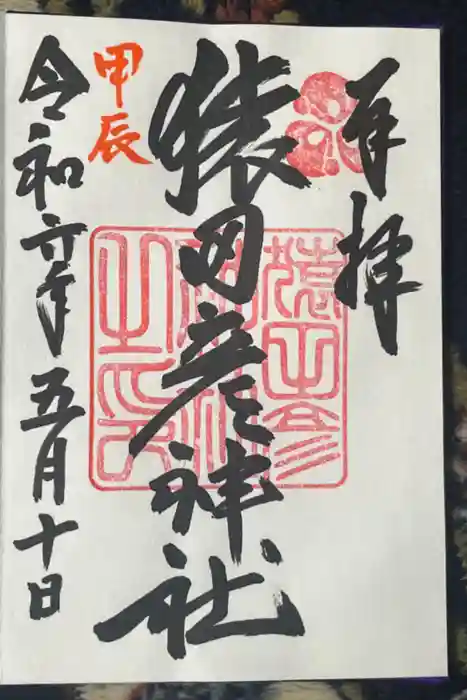 奉拝
猿田彦神社
甲辰
令和六年五月十日
猿田彦
神社
之印